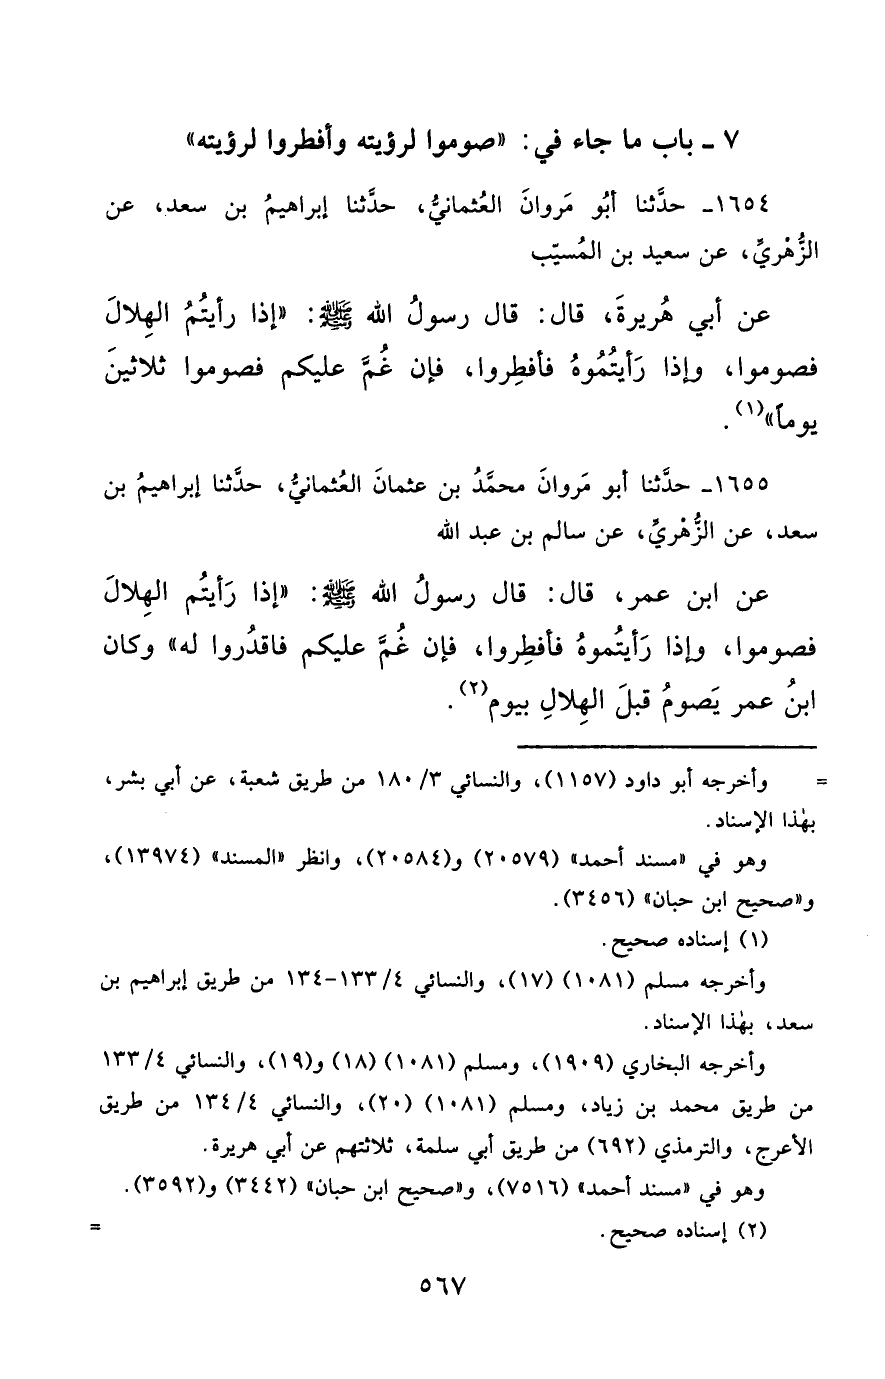 ٧ ـ باب ما جاء في: «صوموا لرؤيته وأفطروا لرؤيته»
١٦٥٤ـ حدَّثنا أبُو مَروانَ العُثمانيُّ، حدَّثنا إبراهيمُ بن سعد، عن
الزُّهْريِّ، عن سعيد بن المُسيّب
عن أبي هُريرةَ، قال: قال رسولُ الله ﷺ: «إذا رأيتُمُ الهِلالَ
فصوموا، وإذا رَأيتُمُوهُ فأفطِروا، فإن غُمَّ عليكم فصوموا ثلاثينَ
يوماً»(١).
١٦٥٥ـ حدَّثنا أبو مَروانَ محمَّدُ بن عثمانَ العُثمانيُّ، حدَّثنا إبراهيمُ بن
سعد، عن الزُّهْريِّ، عن سالم بن عبد الله
عن ابن عمر، قال: قال رسولُ الله ﷺ: «إذا رَأيتُم الهِلالَ
فصوموا، وإذا رَأيتُموهُ فأفطِروا، فإن غُمَّ عليكم فاقدُروا له» وكان
ابنُ عمر يَصومُ قبلَ الهِلالِ بيوم(٢).
= وأخرجه أبو داود (١١٥٧)، والنسائي ١٨٠/٣ من طريق شعبة، عن أبي بشر،
بهٰذا الإسناد.
وهو في «مسند أحمد» (٢٠٥٧٩) و(٢٠٥٨٤)، وانظر «المسند» (١٣٩٧٤)،
و«صحيح ابن حبان» (٣٤٥٦).
(١) إسناده صحيح.
وأخرجه مسلم (١٠٨١) (١٧)، والنسائي ١٣٣/٤-١٣٤ من طريق إبراهيم بن
سعد، بهٰذا الإسناد.
وأخرجه البخاري (١٩٠٩)، ومسلم (١٠٨١) (١٨) و(١٩)، والنسائي ١٣٣/٤
من طريق محمد بن زياد، ومسلم (١٠٨١) (٢٠)، والنسائي ١٣٤/٤ من طريق
الأعرج، والترمذي (٦٩٢) من طريق أبي سلمة، ثلاثتهم عن أبي هريرة.
وهو في «مسند أحمد» (٧٥١٦)، و«صحيح ابن حبان» (٣٤٤٢) و(٣٥٩٢).
(٢) إسناده صحيح. =
٥٦٧